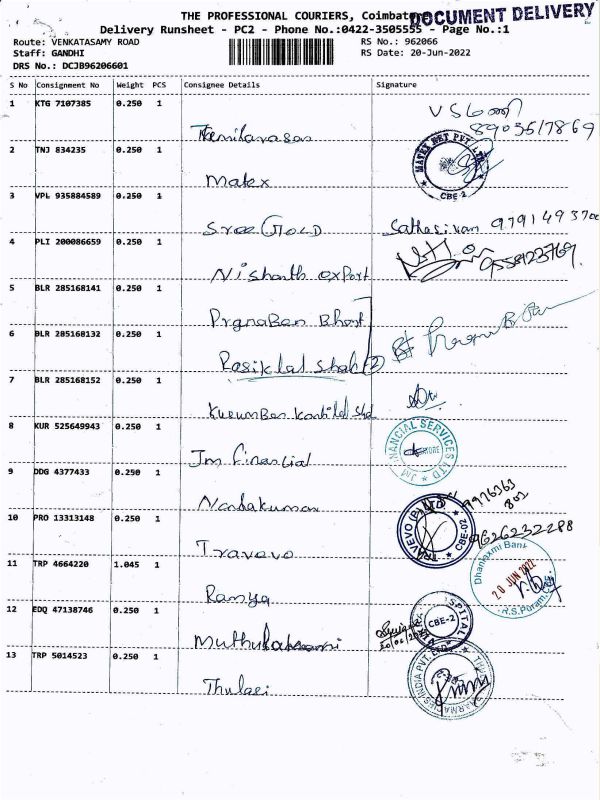 THE PROFESSIONAL COURIERS, Coimbatore
DOCUMENT DELIVERY
Delivery Runsheet - PC2 - Phone No.:0422-3505555 - Page No.:1
Route: VENKATASAMY ROAD RS No.: 962066
Staff: GANDHI RS Date: 20-Jun-2022
DRS No.: DCJB96206601
S No Consignment No Weight PCS Consignee Details Signature
1 KTG 7107385 0.250 1
8903517869
Tamilarasan
2 TNJ 834235 0.250 1
MATEX NET PVT LTD CBE-2
Matex
3 VPL 935884589 0.250 1
Sree GOLD Sathasivan
4 PLI 200086659 0.250 1
Nishanth export
5 BLR 285168141 0.250 1
PrgnaBen Bhart
6 BLR 285168132 0.250 1
Rasiklal Shah (2)
7 BLR 285168152 0.250 1
KusumBen Kantilal Sha
8 KUR 525649943 0.250 1
JM FINANCIAL SERVICES LTD
Jm Financial
9 DDG 4377433 0.250 1
Nandakumar
10 PRO 13313148 0.250 1
TRAVEVO (P) LTD CBE-02
9626232288
Travevo
11 TRP 4664220 1.045 1
Dhanlaxmi Bank
20 JUN 2022
R.S.Puram
Ramya
12 EDQ 47138746 0.250 1
CBE-2
20/06/2022
Muthulakshmi
13 TRP 5014523 0.250 1
INDIA PVT. LTD
Thulasi